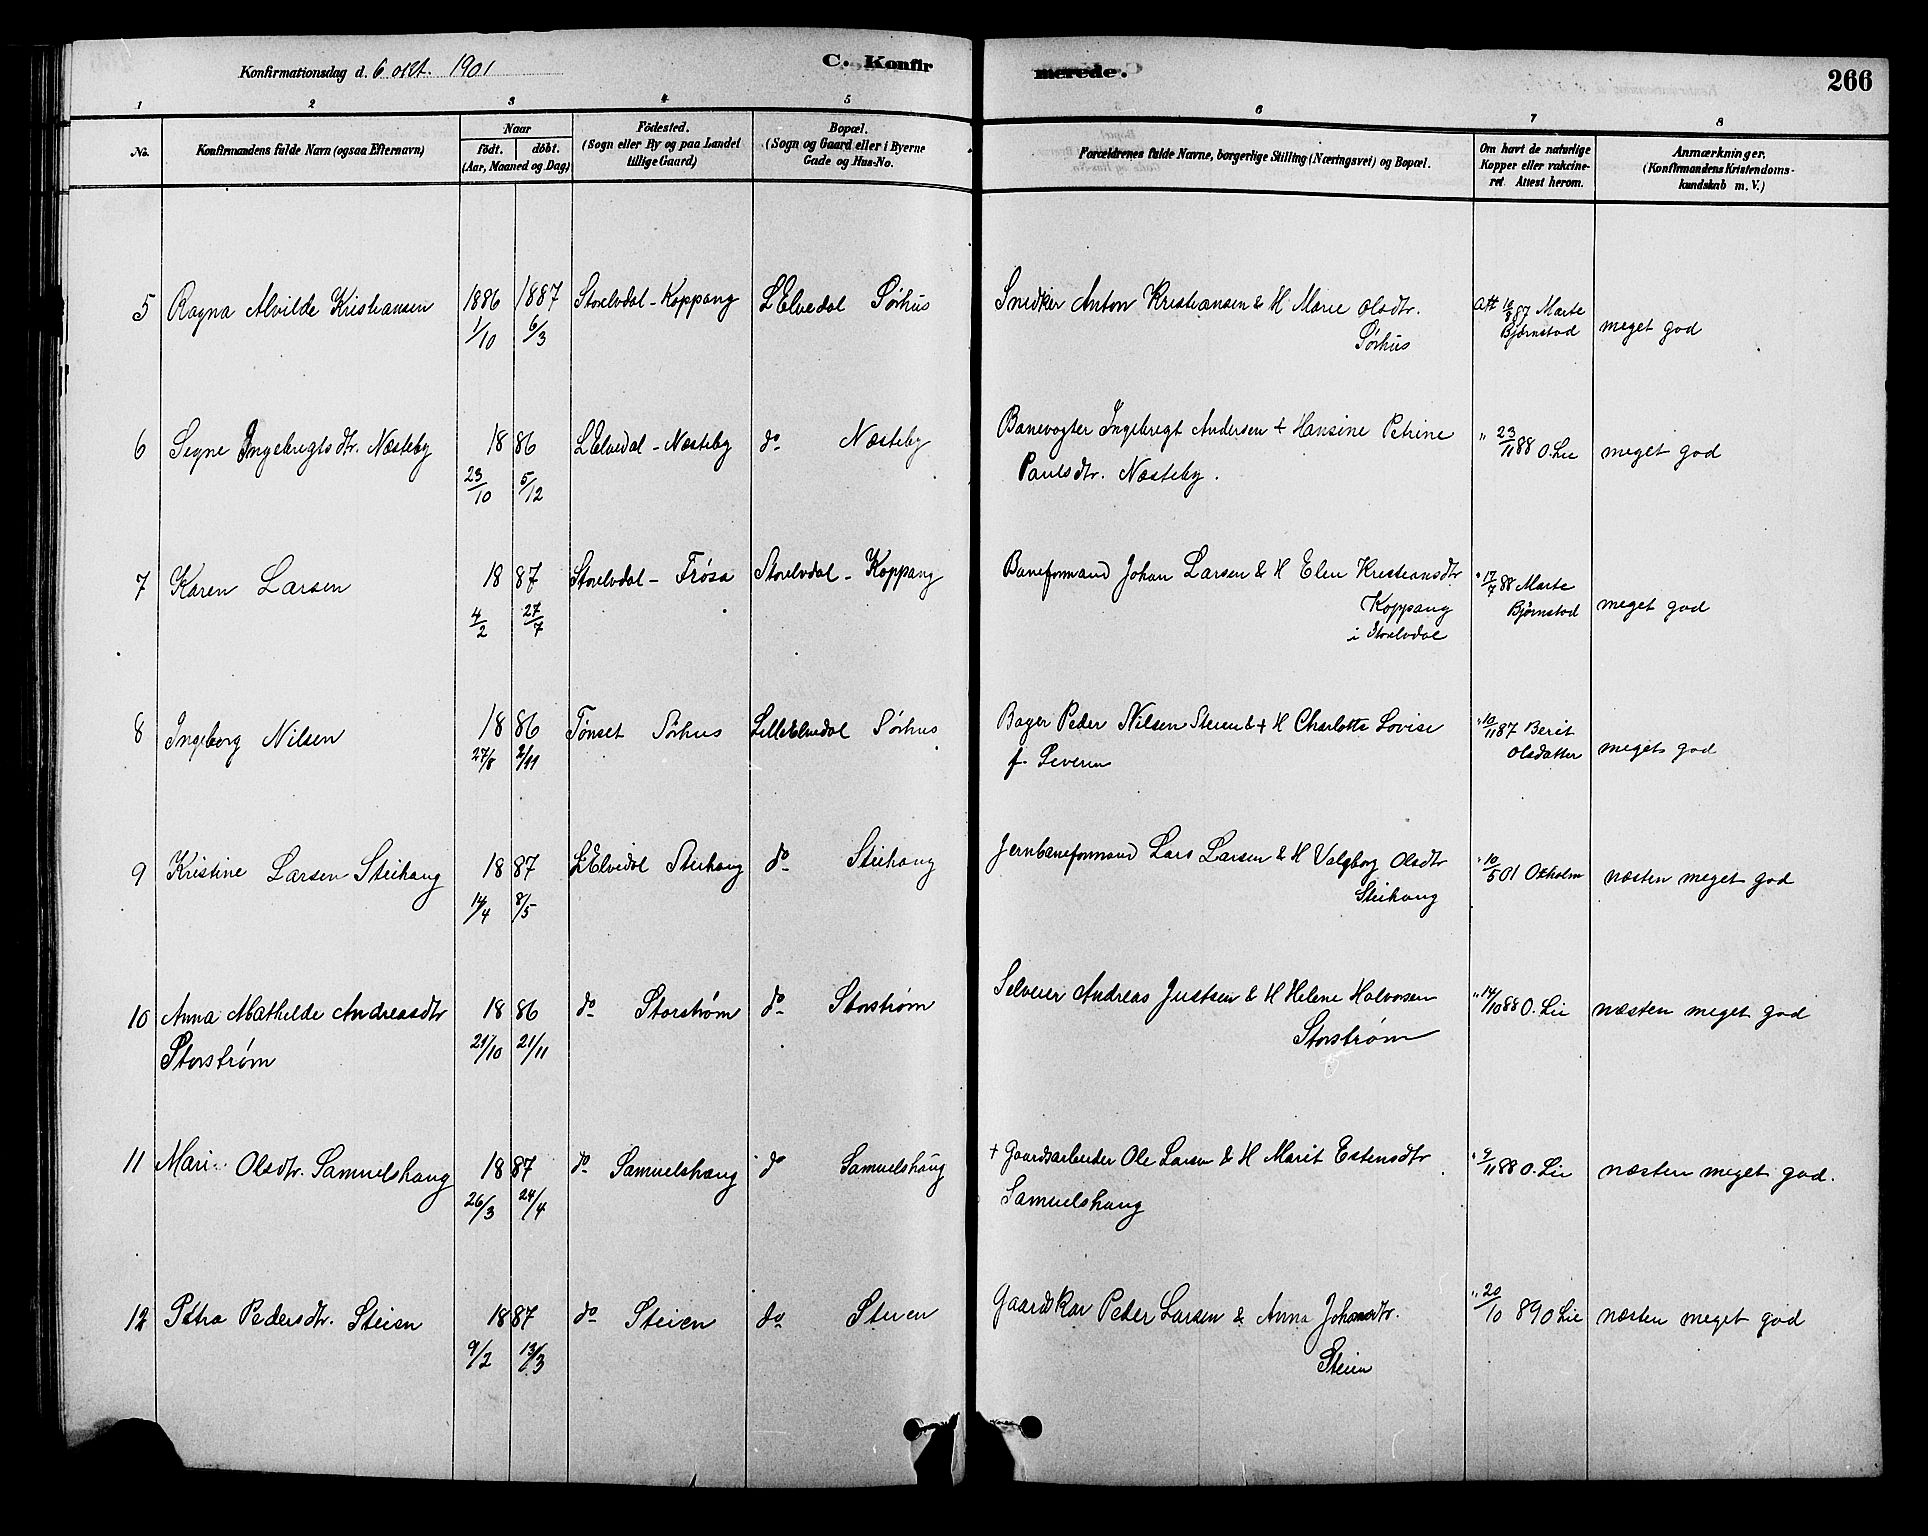 Konfirmationsdag d. 6 okt. 1901
C. Konfirmerede.
266
1 2 3 4 5 6 7 8
No.
Konfirmandens fulde Navn (ogsaa Efternavn)
Naar
födt. döbt.
(Aar, Maaned og Dag)
Födested.
(Sogn eller By og paa Landet
tillige Gaard)
Bopæl.
(Sogn og Gaard eller i Byerne
Gade og Hus-No.
Forældrenes fulde Navne, borgerlige Stilling (Næringsvei) og Bopæl.
Om havt de naturlige
Kopper eller vakcine-
ret Attest herom.
Anmærkninger.
(Konfirmandens Kristendoms-
kundskab m. V.)
5 Ragna Alvilde Kristiansen 1886 1/10 1887 6/3 Storelvdal - Koppang L Elvedal Sørhus Snedker Anton Kristiansen & H Marie Olsdtr.
Sørhus
Att 16/8 87 Marte
Bjørnstad
meget god
6 Signe Ingebregtsdtr. Næsteby 1886 23/10 5/12 L Elvedal - Næsteby do Næsteby Banevogter Ingebregt Andersen & Hansine Petrine
Paulsdtr. Næsteby.
" 23/11 88 O. Lie meget god
7 Karen Larsen 1887 4/2 27/7 Storelvdal - Frøsa Storelvdal - Koppang Baneformand Johan Larsen & H Elen Kristiansdtr
Koppang
i Storelvdal
" 17/7 88 Marte
Bjørnstad
meget god
8 Ingeborg Nilsen 1886 27/8 2/11 Tønset Sørhus Lille Elvedal Sørhus Bager Peder Nilsen Steien & + H Charlotte Lovise
f. Severin
" 10/11 87 Berit
Olsdatter
meget god
9 Kristine Larsen Steihaug 1887 14/4 8/5 L Elvedal Steihaug do Steihaug Jernbaneformand Lars Larsen & H Valgborg Olsdtr
Steihaug
" 10/5 01 Oxholm næsten meget god
10 Anna Mathilde Andreasdtr
Storstrøm
1886 21/10 21/11 do Storstrøm do Storstrøm Selveier Andreas Justsen & H Helene Halvorsen
Storstrøm
" 14/10 88 O. Lie næsten meget god
11 Mari Olsdtr. Samuelshaug 1887 26/3 24/4 do Samuelshaug do Samuelshaug + Gaardsarbeider Ole Larsen & H Marit Estensdtr
Samuelshaug
" 9/11 88 O. Lie næsten meget god.
12 Petra Pedersdtr. Steien 1887 9/2 13/3 do Steien do Steien Gaardskar Peder Larsen & Anna Johansdtr.
Steien
" 20/10 89 O Lie næsten meget god